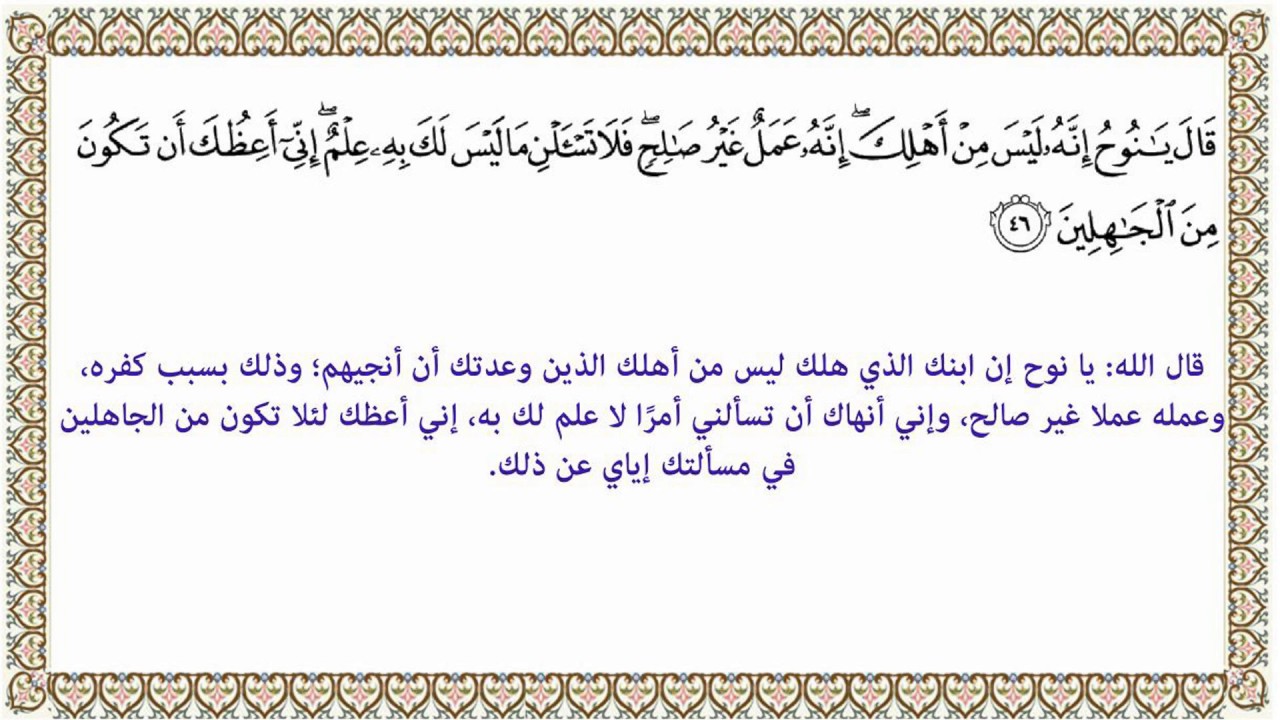 قَالَ يَـٰنُوحُ إِنَّهُۥ لَيْسَ مِنْ أَهْلِكَ ۖ إِنَّهُۥ عَمَلٌ غَيْرُ صَـٰلِحٍ ۖ فَلَا تَسْـَٔلْنِ مَا لَيْسَ لَكَ بِهِۦ عِلْمٌ ۖ إِنِّىٓ أَعِظُكَ أَن تَكُونَ
مِنَ ٱلْجَـٰهِلِينَ ٤٦
قال الله: يا نوح إن ابنك الذي هلك ليس من أهلك الذين وعدتك أن أنجيهم؛ وذلك بسبب كفره،
وعمله عملا غير صالح، وإني أنهاك أن تسألني أمرًا لا علم لك به، إني أعظك لئلا تكون من الجاهلين
في مسألتك إياي عن ذلك.